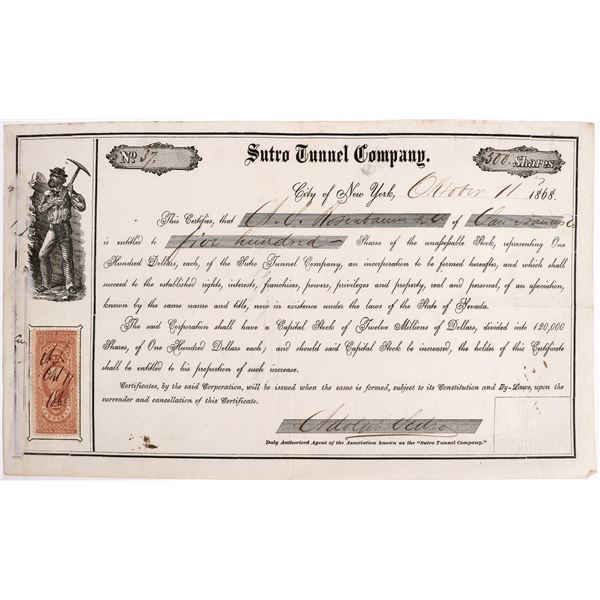 No. 57.
Sutro Tunnel Company.
500. Shares
City of New York, Oktober 11th 1868.
This Certifies, that A. S. Rosenbaum & Co of San Francisco
is entitled to five hundred Shares of the unassessable Stock, representing One
Hundred Dollars, each, of the Sutro Tunnel Company, an incorporation to be formed hereafter, and which shall
succeed to the established rights, interests, franchises, powers, privileges and property, real and personal, of an association,
known by the same name and title, now in existence under the laws of the State of Nevada.
The said Corporation shall have a Capital Stock of Twelve Millions of Dollars, divided into 120,000
Shares, of One Hundred Dollars each; and should said Capital Stock be increased, the holder of this Certificate
shall be entitled to his proportion of such increase.
Certificates, by the said Corporation, will be issued when the same is formed, subject to its Constitution and By-Laws, upon the
surrender and cancellation of this Certificate.
Adolph Sutro
Duly Authorized Agent of the Association known as the "Sutro Tunnel Company."
Oct 11
1868